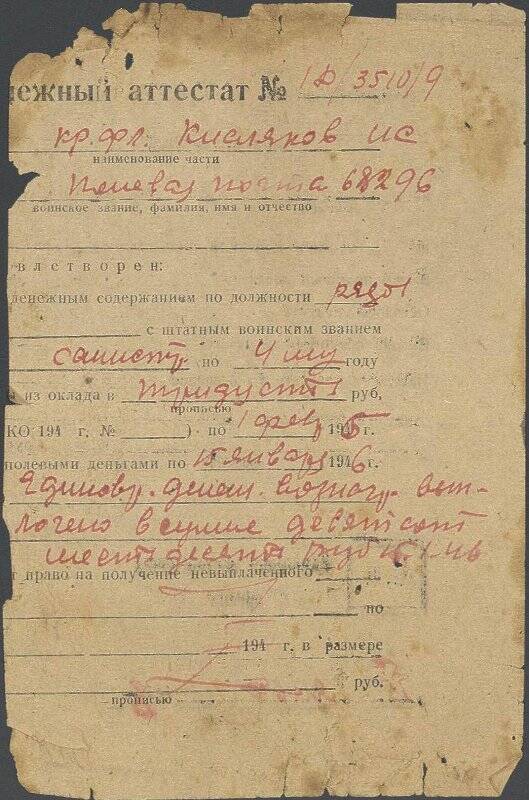 нежный аттестат № 1Д/3510/9
кр.фл. Кисляков ИС
наименование части
Полевая почта 68296
воинское звание, фамилия, имя и отчество
влетворен:
денежным содержанием по должности ряд
с штатным воинским званием
по 4му году
а из оклада в тридцать руб,
прописью
КО 194 г. № ) по 1 февр 1945 г.
полевыми деньгами по 15 января 1946
Единовр. денеж. вознагр. вып-
лочено в сумме девятсот
шестьдесять руб
право на получение невыплаченного
по
194 г. в размере
руб.
прописью